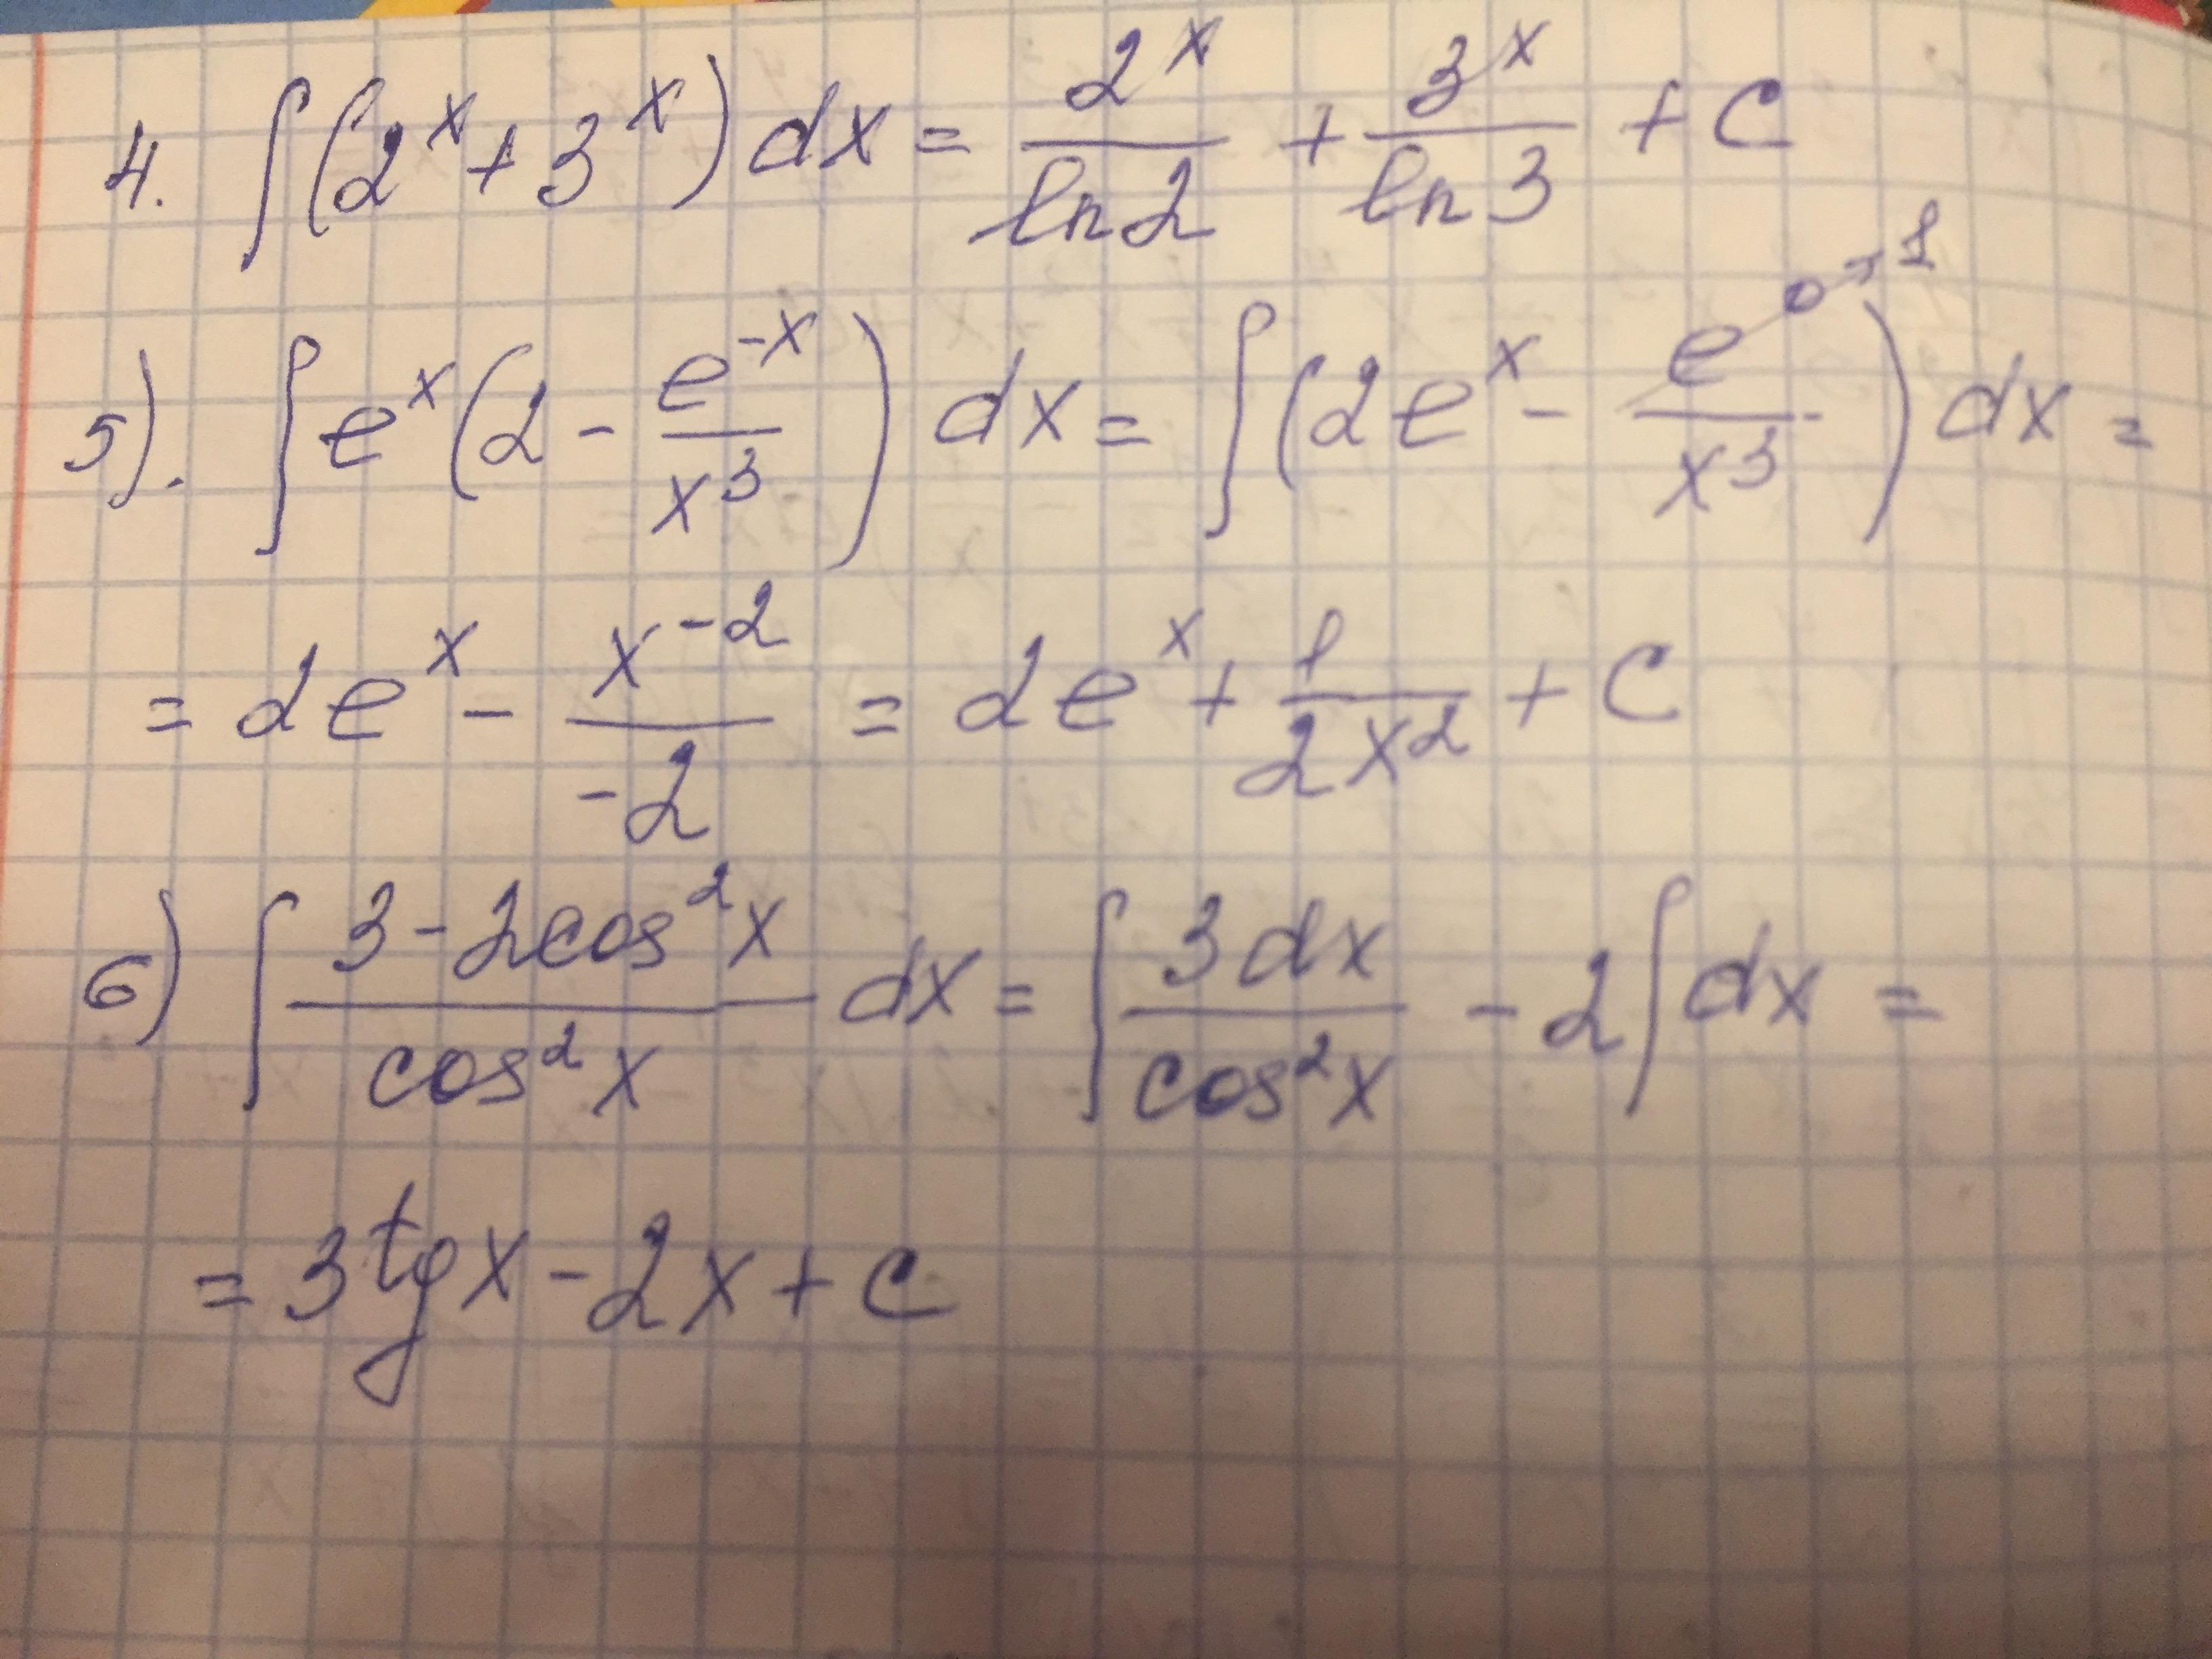 4. ∫(2^x + 3^x) dx = 2^x/ln2 + 3^x/ln3 + C
5). ∫e^x(2 - e^-x/x^3) dx = ∫(2e^x - e^0→1/x^3) dx =
= 2e^x - x^-2/-2 = 2e^x + 1/2x^2 + C
6) ∫ 3-2cos^2x/cos^2x dx = ∫ 3dx/cos^2x - 2∫dx =
= 3tgx - 2x + C